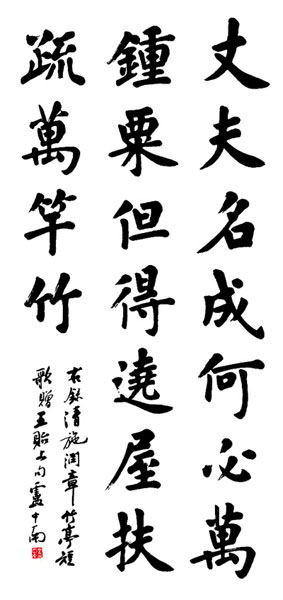 丈夫名成何必萬
鍾粟但得遶屋扶
疏萬竿竹
右錄清施潤章竹亭短
歌贈王貽上句盧中南